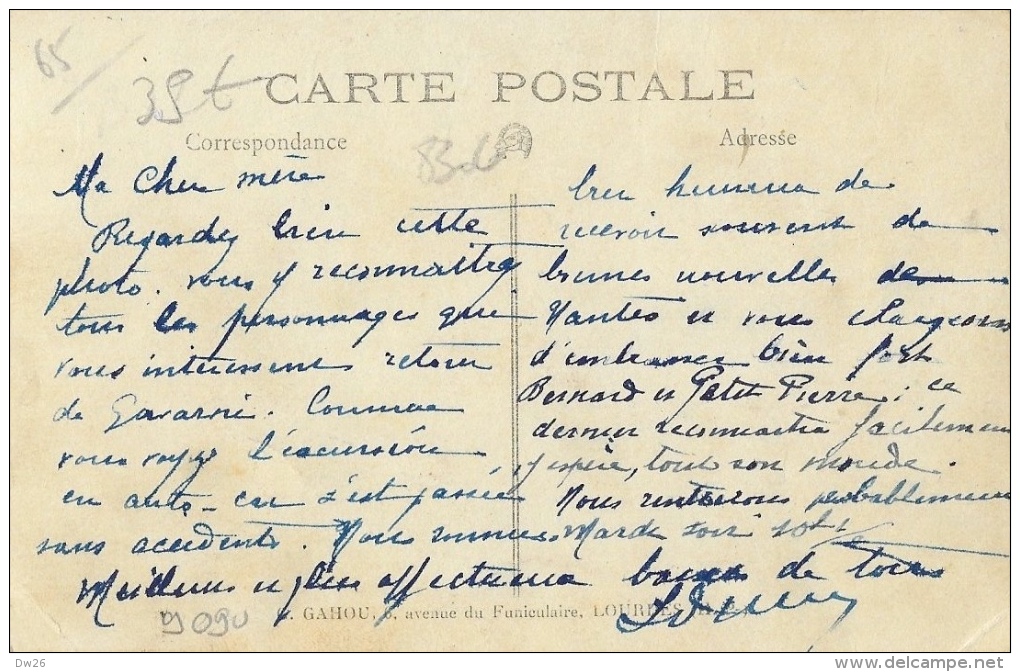 65
35t
CARTE POSTALE
Correspondance
Adresse
Ma Cher mère
Regardez bien cette
photo. vous y reconnaitrez
tous les personnages que
vous intéressent retour
de Gavarnie. Comme
vous voyez l'éxcursion
en auto-car s'est passée
sans accidents. Nous sommes
bien heureux de
recevoir souvent de
bonnes nouvelles de
Nantes et vous chargeons
d'embrasser bien fort
Bernard et Petit Pierre; ce
dernier reconnaitra facilement
j'espère, tout son monde.
Nous rentrerons probablement
Mardi soir 10h 1/2
Meilleurs et plus affectueux baisers de tous
GAHOU, 6, avenue du Funiculaire, LOURDES
9090
Dw26
www.delcampe.net